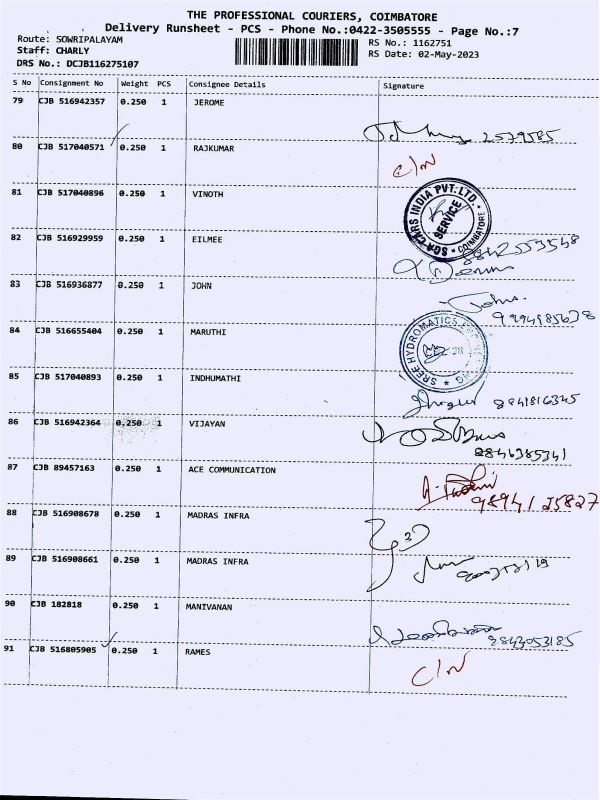 THE PROFESSIONAL COURIERS, COIMBATORE
Delivery Runsheet - PCS - Phone No.:0422-3505555 - Page No.:7
Route: SOWRIPALAYAM RS No.: 1162751
Staff: CHARLY RS Date: 02-May-2023
DRS No.: DCJB116275107
S No Consignment No Weight PCS Consignee Details Signature
79 CJB 516942357 0.250 1 JEROME
2579585
80 CJB 517040571 0.250 1 RAJKUMAR
C/N
81 CJB 517040896 0.250 1 VINOTH
SGA CARS INDIA PVT.LTD. SERVICE COIMBATORE
82 CJB 516929959 0.250 1 EILMEE
83 CJB 516936877 0.250 1 JOHN
John.
84 CJB 516655404 0.250 1 MARUTHI
SREE HYDROMATICS
85 CJB 517040893 0.250 1 INDHUMATHI
8941816345
86 CJB 516942364 0.250 1 VIJAYAN
87 CJB 89457163 0.250 1 ACE COMMUNICATION
98941 25827
88 CJB 516908678 0.250 1 MADRAS INFRA
89 CJB 516908661 0.250 1 MADRAS INFRA
90 CJB 182818 0.250 1 MANIVANAN
9843053185
91 CJB 516805905 0.250 1 RAMES
C/N